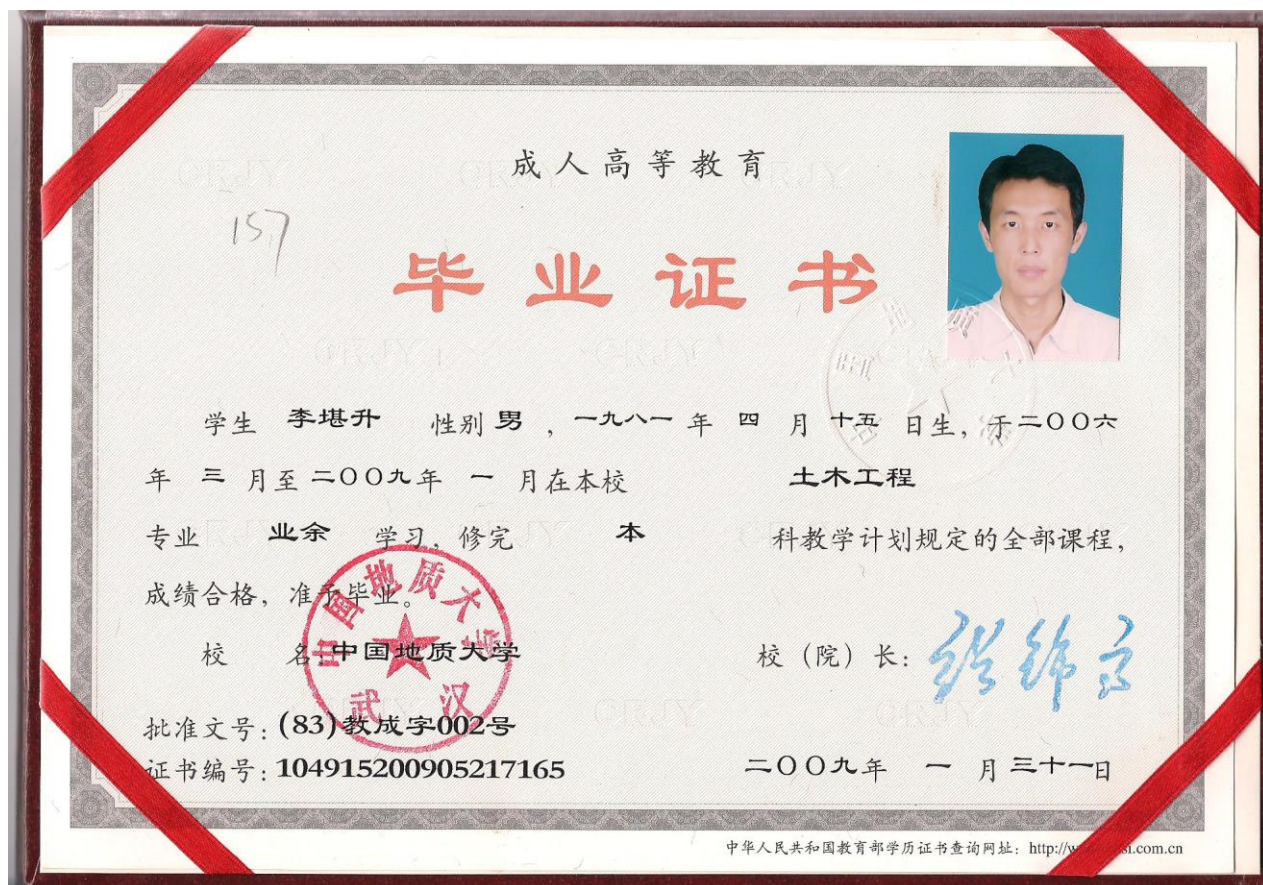 成人高等教育
157
毕业证书
学生 李堪升 性别 男 , 一九八一 年 四 月 十五 日生, 于二〇〇六
年 三 月至 二〇〇九年 一 月在本校 土木工程
专业 业余 学习, 修完 本 科教学计划规定的全部课程,
成绩合格, 准予毕业。
中国地质大学
武汉
校 名: 中国地质大学 校(院)长:
批准文号: (83)教成字002号
证书编号: 104915200905217165 二〇〇九年 一 月 三十一日
中华人民共和国教育部学历证书查询网址: http://w
si.com.cn